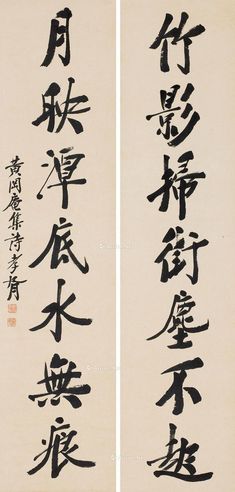 竹影掃街塵不起
月映潭底水無痕
黃庵集詩孝胥